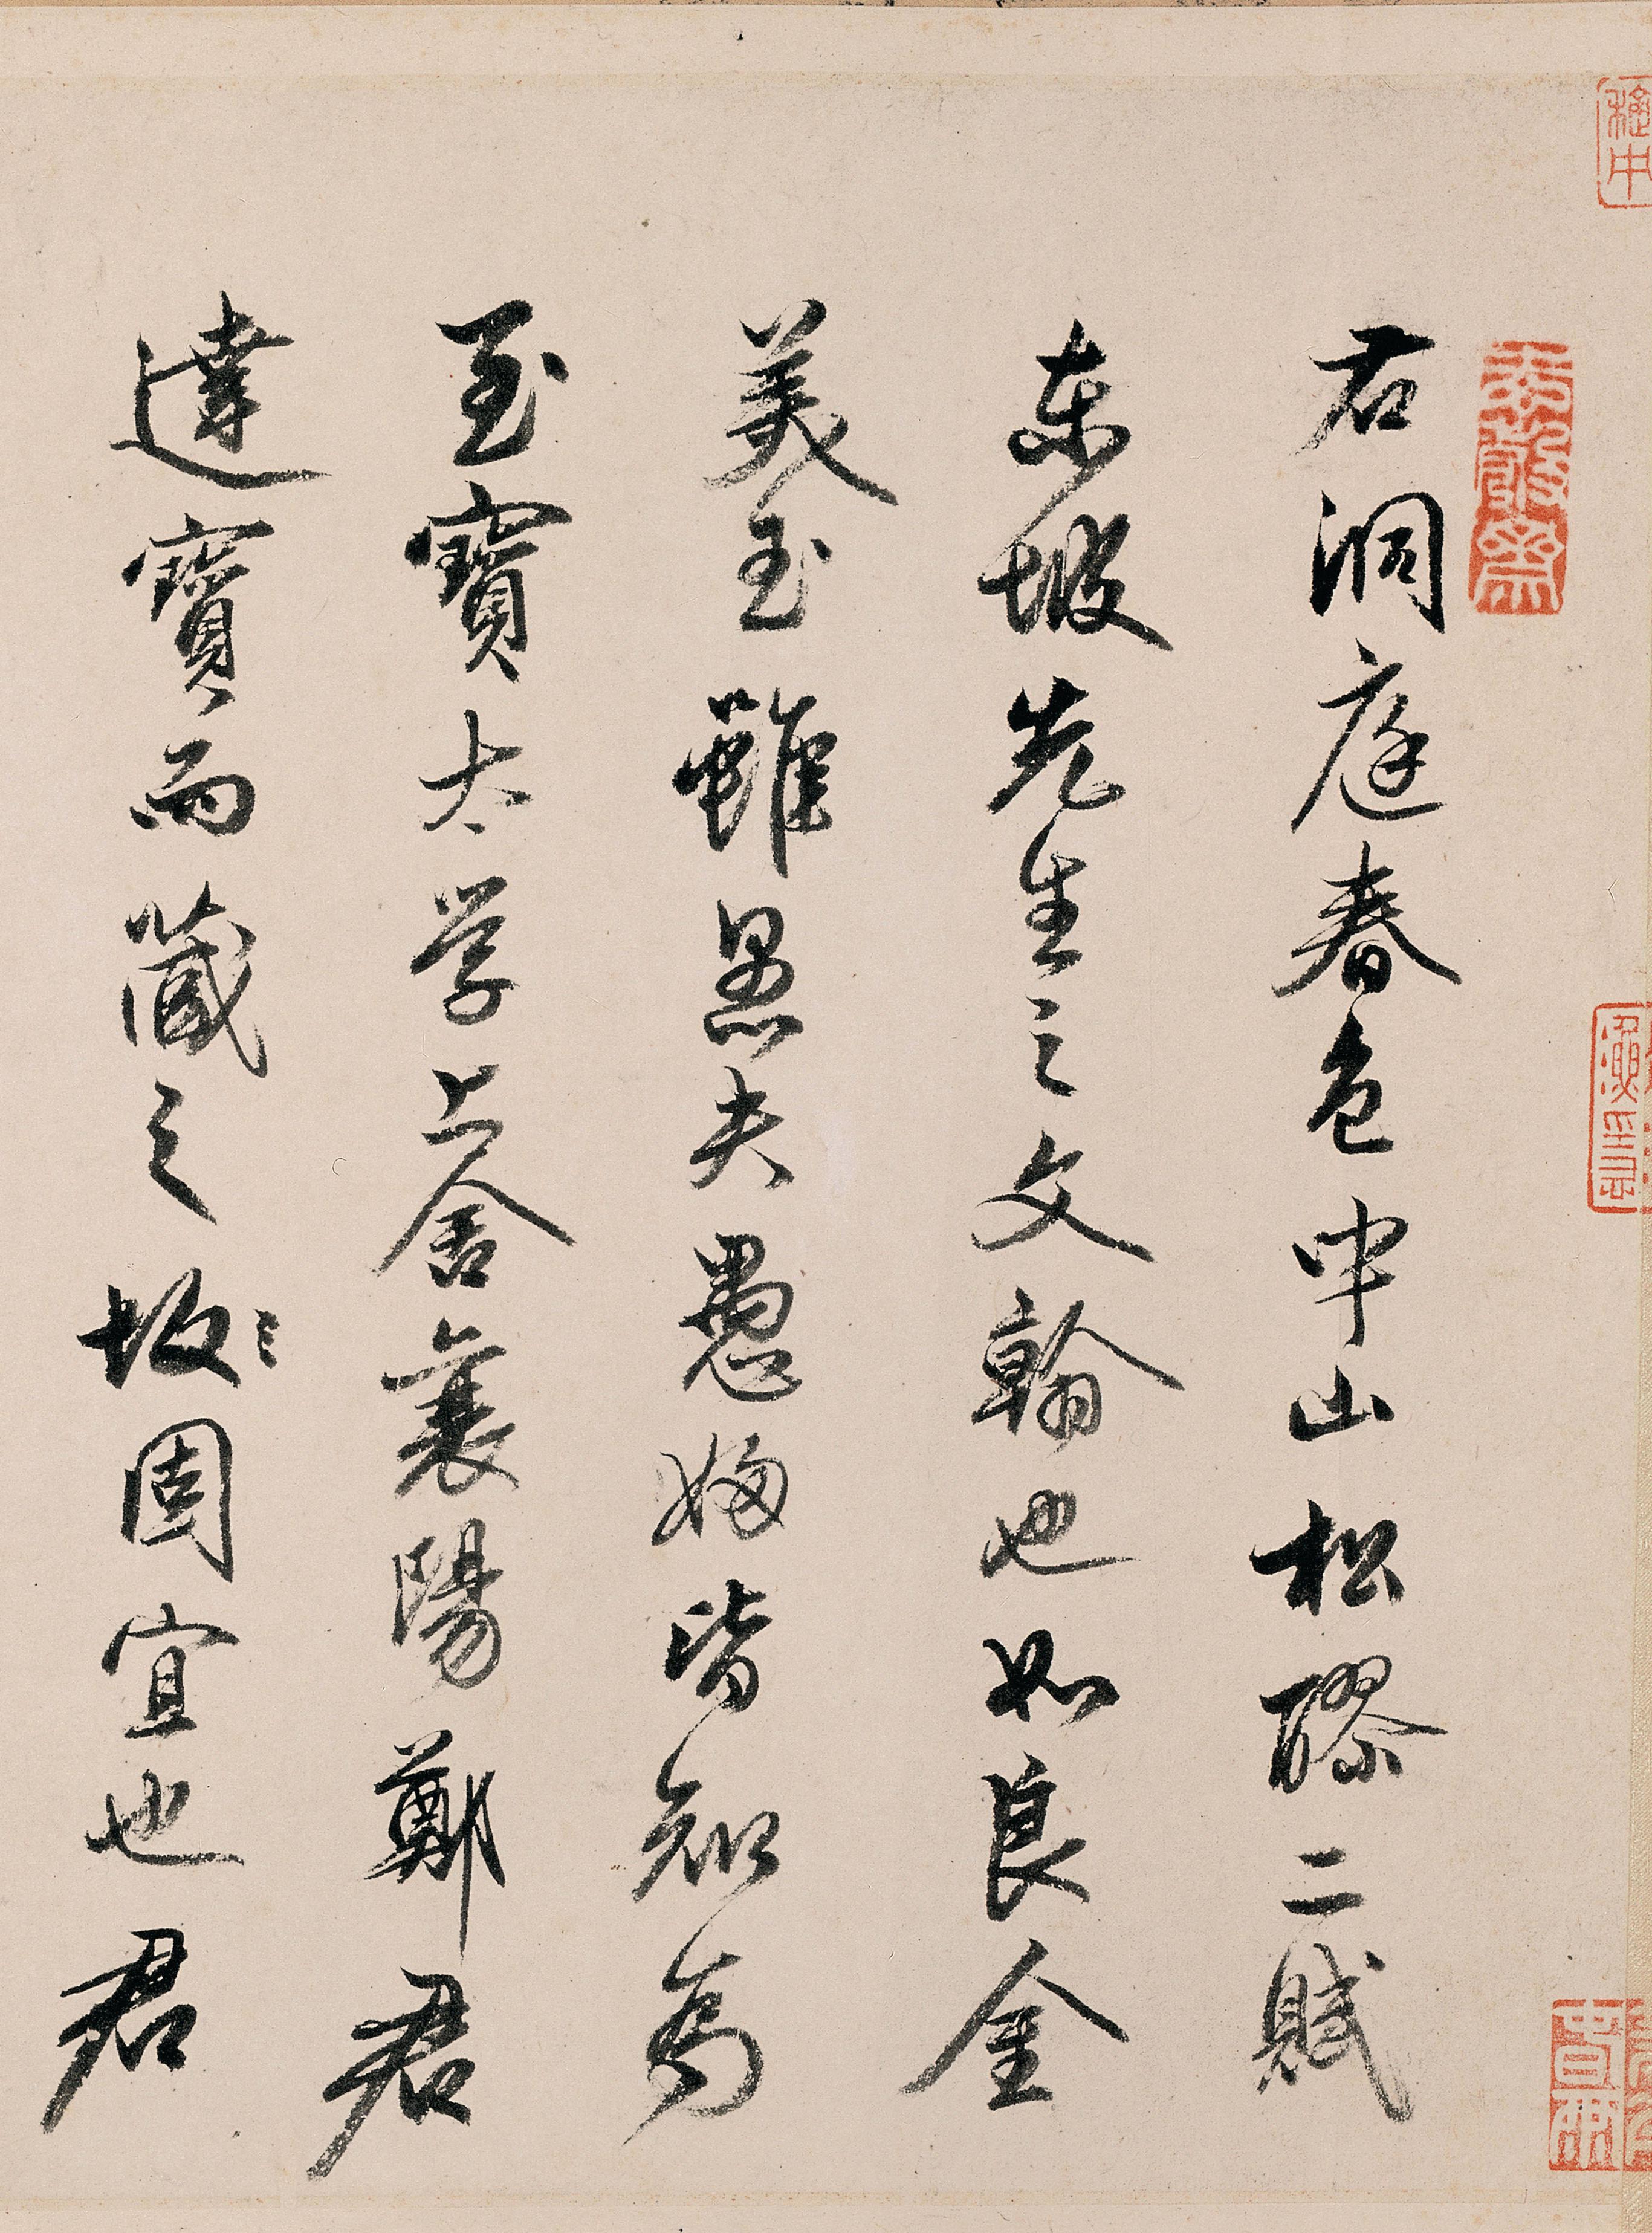 右洞庭春色中山松醪二賦
東坡先生之文翰也如良金
美玉雖愚夫愚婦皆知為
至寶太学上舍襄陽鄭君
達寶而藏之坂〻固宜也君